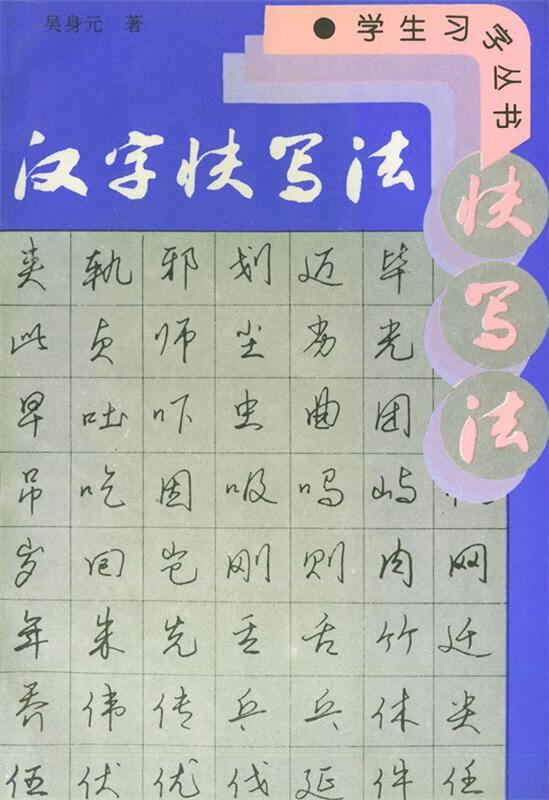 吴身元 著
学生习字丛书
汉字快写法
快写法
夹 轨 邪 划 迈 毕
此 贞 师 尘 光
早 吐 吓 虫 曲 团
吊 吃 因 吸 吗 屿
岁 回 岂 刚 则 肉 网
年 朱 先 丢 舌 竹 迁
乔 伟 传 乒 乓 休
伍 伏 优 伐 延 件 任